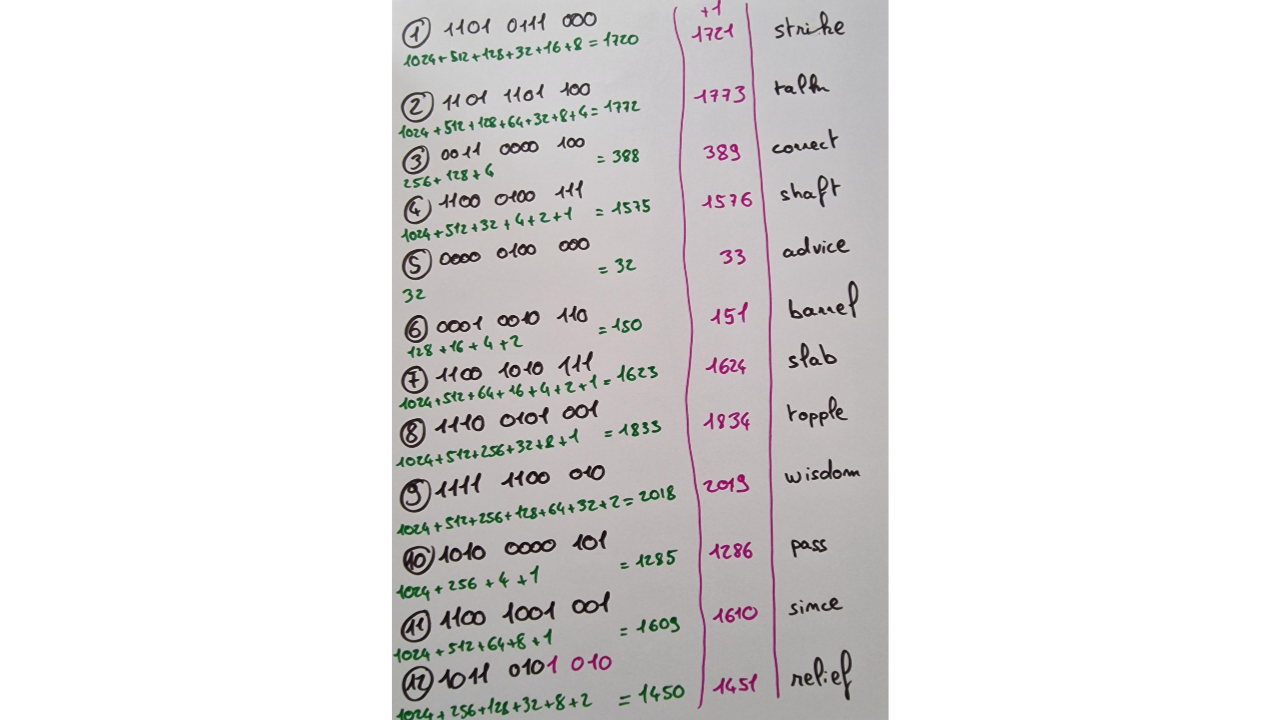 +1
① 1101 0111 000 1721 strike
1024+512+128+32+16+8 = 1720
② 1101 1101 100 1773 talk
1024+512+128+64+32+8+4 = 1772
③ 0011 0000 100 = 388 389 correct
256+128+4
④ 1100 0100 111 1576 shaft
1024+512+32+4+2+1 = 1575
⑤ 0000 0100 000 = 32 33 advice
32
⑥ 0001 0010 110 = 150 151 barrel
128+16+4+2
⑦ 1100 1010 111 1624 slab
1024+512+64+16+4+2+1 = 1623
⑧ 1110 0101 001 1834 topple
1024+512+256+32+8+1 = 1833
⑨ 1111 1100 010 2019 wisdom
1024+512+256+128+64+32+2 = 2018
⑩ 1010 0000 101 1286 pass
1024+256+4+1 = 1285
⑪ 1100 1001 001 1610 since
1024+512+64+8+1 = 1609
⑫ 1011 0101 010 1451 relief
1024+256+128+32+8+2 = 1450